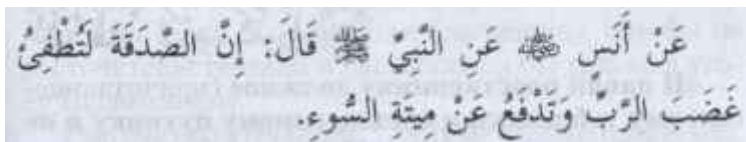 عَنْ أَنَسٍ ﷺ عَنِ النَّبِيِّ ﷺ قَالَ: إِنَّ الصَّدَقَةَ لَتُطْفِئُ
غَضَبَ الرَّبِّ وَتَدْفَعُ عَنْ مِيتَةِ السُّوءِ.